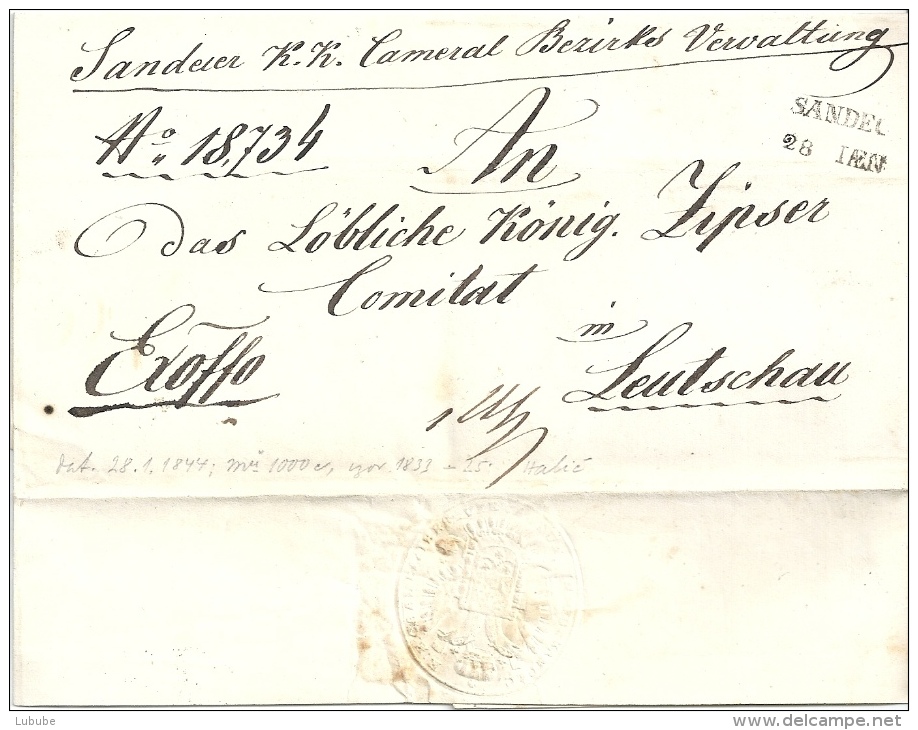 Sandecer K. K. Cameral Bezirks Verwaltung
SANDEC
28 IÆN
No 18,734
An
das Löbliche König. Zipser
Comitat
in
Exoffo
Leutschau
dat. 28.1.1844;
Lubube
www.delcampe.net